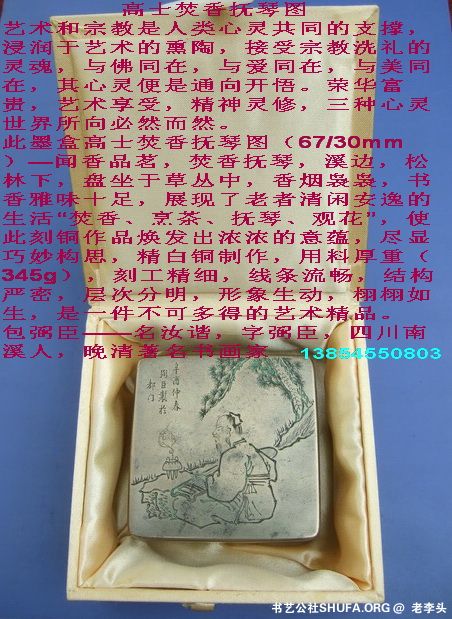 高士焚香抚琴图
艺术和宗教是人类心灵共同的支撑，
浸润于艺术的熏陶，接受宗教洗礼的
灵魂，与佛同在，与爱同在，与美同
在，其心灵便是通向开悟。荣华富
贵，艺术享受，精神灵修，三种心灵
世界所向必然而然。
此墨盒高士焚香抚琴图（67/30mm
）—闻香品茗，焚香抚琴，溪边，松
林下，盘坐于草丛中，香烟袅袅，书
香雅味十足，展现了老者清闲安逸的
生活“焚香、烹茶、抚琴、观花”，使
此刻铜作品焕发出浓浓的意蕴，尽显
巧妙构思，精白铜制作，用料厚重（
345g），刻工精细，线条流畅，结构
严密，层次分明，形象生动，栩栩如
生，是一件不可多得的艺术精品。
包强臣——名汝谐，字强臣，四川南
溪人，晚清著名书画家 13854550803
辛酉仲春
臣製於
都门
书艺公社SHUFA.ORG @ 老李头